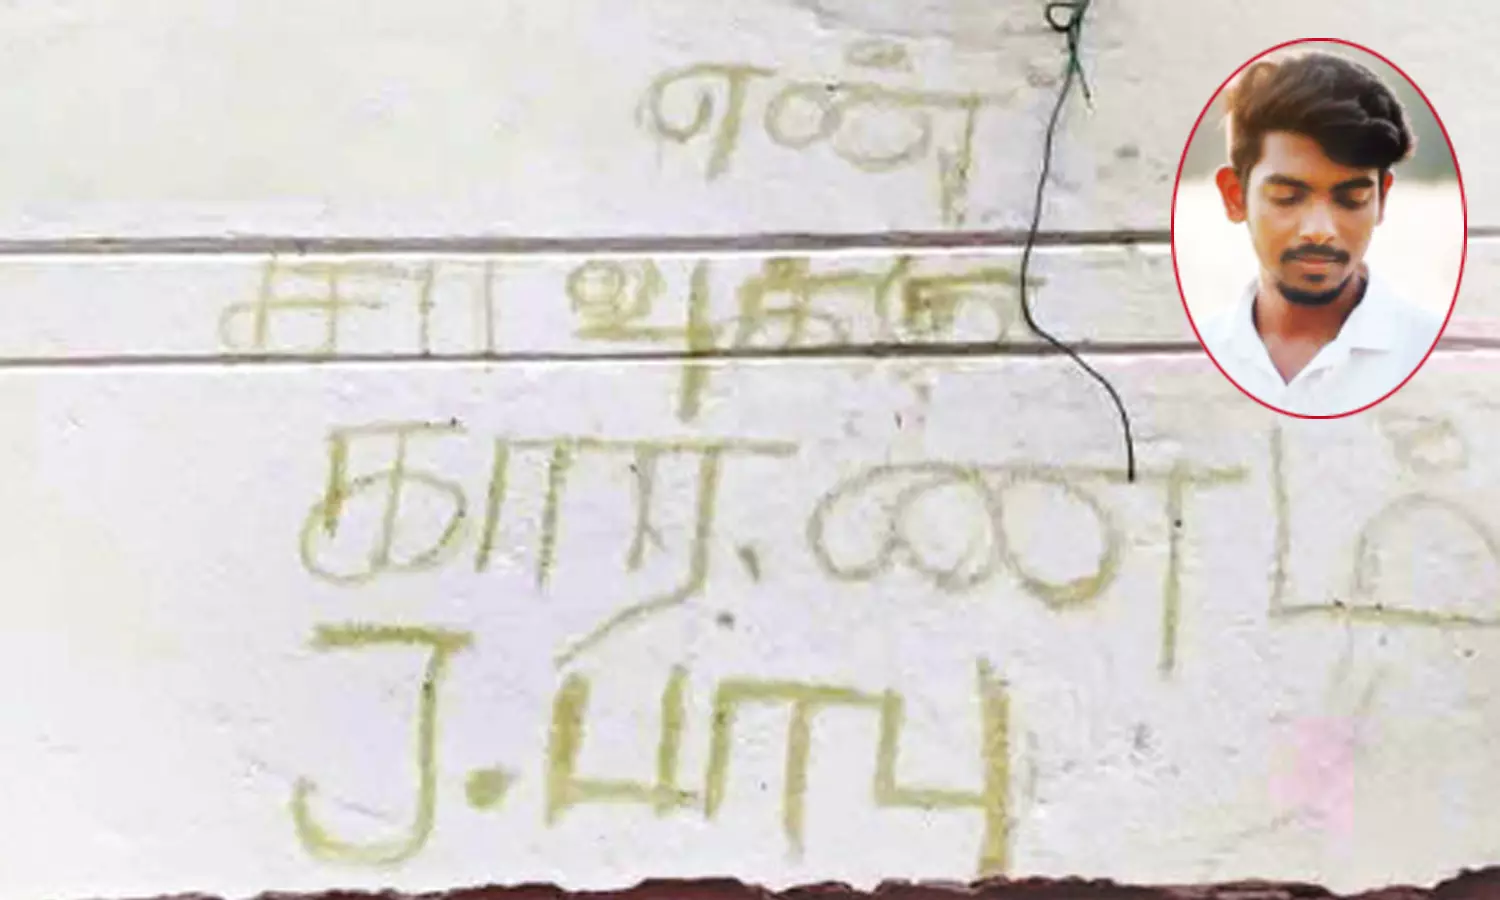 என்
சாவுக்கு
காரணம்
J.பாபு